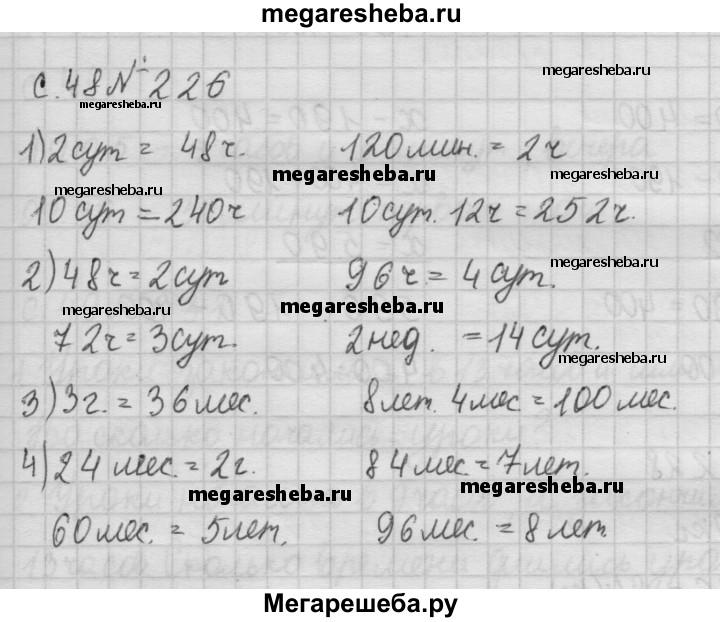 megaresheba.ru
с.48 № 226
megaresheba.ru
megaresheba.ru
1) 2 сут = 48 ч. 120 мин. = 2 ч
megaresheba.ru
megaresheba.ru
megaresheba.ru
10 сут = 240 ч 10 сут. 12 ч = 252 ч.
2) 48 ч = 2 сут 96 ч. = 4 сут.
megaresheba.ru
megaresheba.ru
megaresheba.ru
72 ч = 3 сут. 2 нед. = 14 сут.
megaresheba.ru
3) 3 г. = 36 мес. 8 лет. 4 мес = 100 мес.
4) 24 мес. = 2 г. 84 мес = 7 лет.
megaresheba.ru
megaresheba.ru
60 мес. = 5 лет. 96 мес. = 8 лет
Мегарешеба.ру